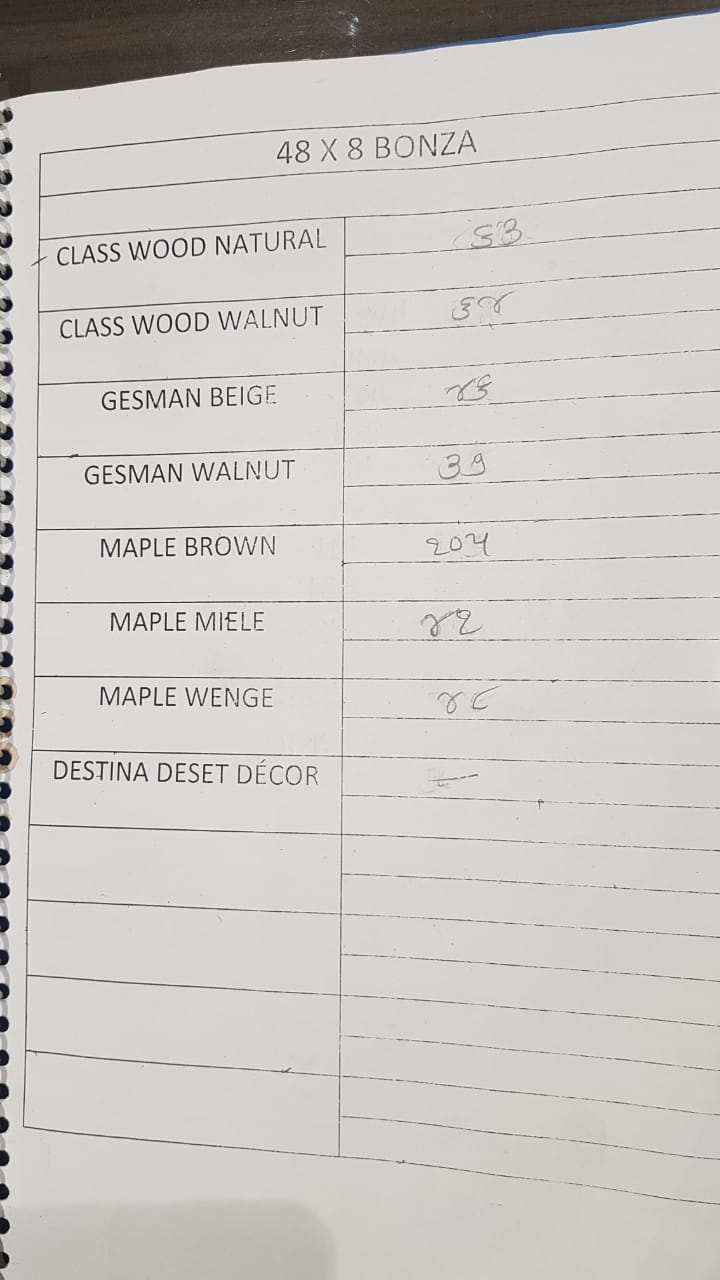 48 X 8 BONZA
CLASS WOOD NATURAL
CLASS WOOD WALNUT
GESMAN BEIGE
GESMAN WALNUT
MAPLE BROWN ૨૦૫
MAPLE MIELE ૪૨
MAPLE WENGE ૪૮
DESTINA DESET DÉCOR